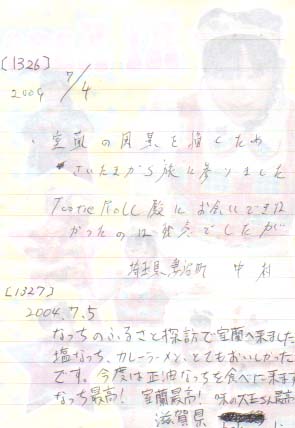 [1326]
2004 7/4
・室蘭の風景を描くため
さいたまから旅に参りました
Tootie Roll 殿に お会いできな
かったのは残念でしたが
埼玉県 中村
[1327]
2004.7.5
なっちのふるさと探訪で室蘭へ来ました
塩なっち、カレーラーメン、とてもおいしかった
です。今度は正油なっちを食べに来ます
なっち最高! 室蘭最高! 味の大王さん最高
滋賀県